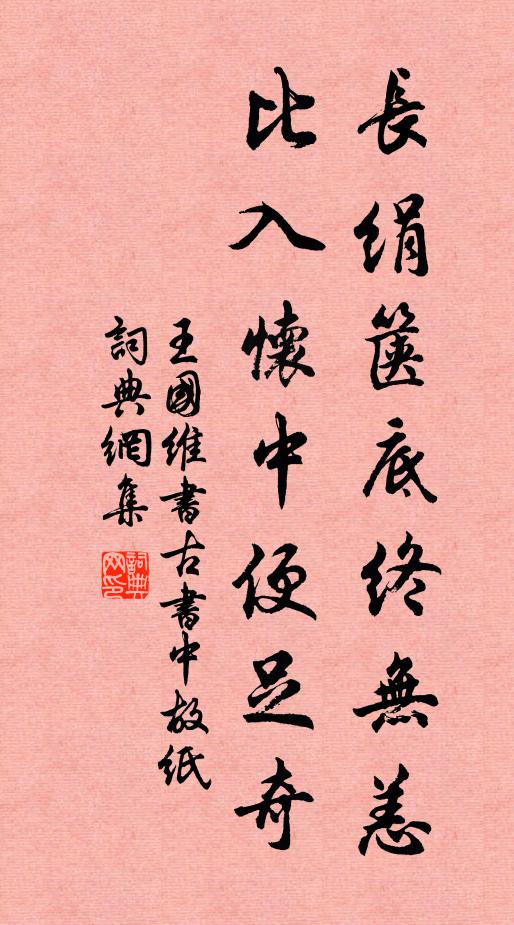 長絹篋底終無恙
比入懷中便足奇
王國維書古書中故紙
詞典網集
詞典網印